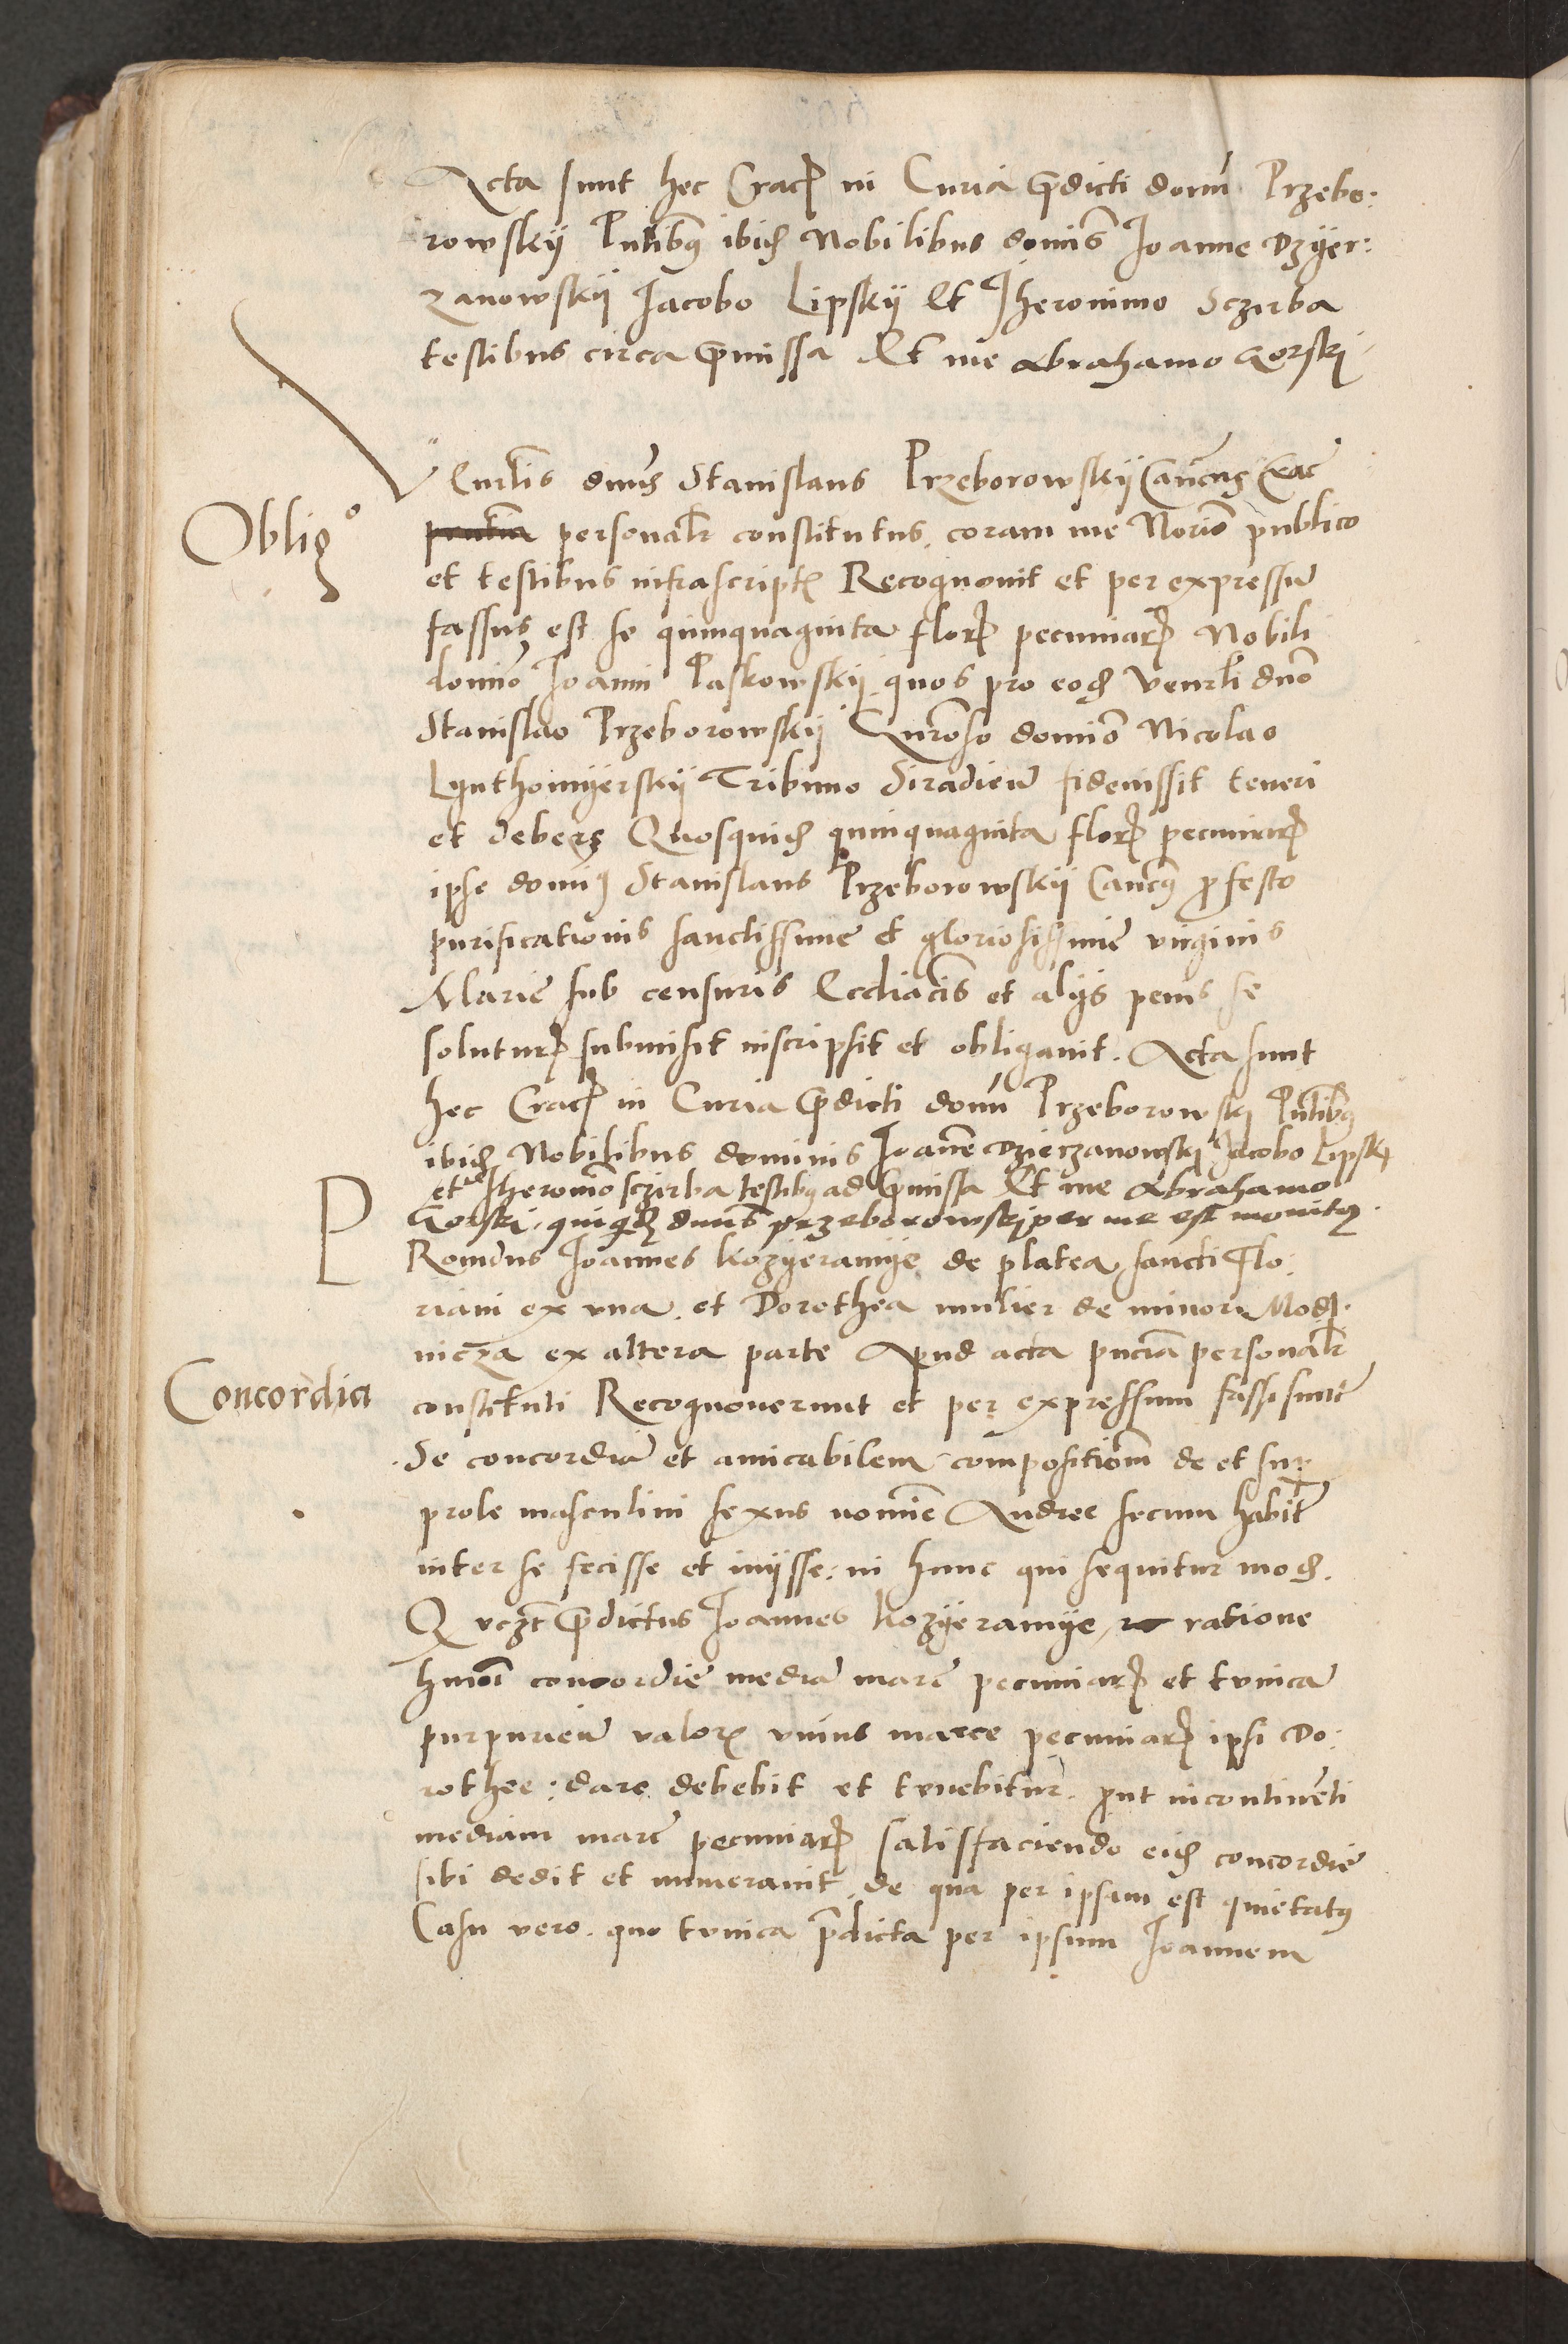 Acta sunt hec Crac in Curia pdicti domi Przebo:
rowskij Pntibus ibid Nobilibus dominis Joanne Dzyer:
zanowskij Jacobo Lipskij Et Jheronimo Sczirba
testibus circa pmissa Et me Abrahamo Gorski
Obligo
Venerlis dnus Stanislaus Przeborowskij Canicus Crac
personalr constitutus coram me Notrio publico
et testibus infrascriptis Recognovit et per expressu
fassus est se quinquaginta flor pecuniar Nobili
domino Joanni Paskowskij quos pro eod Venrli dno
Stanislao Przeborowskij Gnroso domino Nicolao
Lynthomyerskij Tribuno Siradien fideiussit teneri
et debere Quosquid quinquaginta flor pecuniar
ipse domin9 Stanislaus Przeborowskij Canic9 p festo
purificationis sanctissime et gloriosissime virginis
Marie sub censuris Eccliacis et alijs penis se
solutur submisit inscripsit et obligavit. Acta sunt
hec Crac in Curia pdicti domi Przeborowski Pntibus
ibid Nobilibus dominis Joanne Dzierzanowski Jacobo Lipski
et Jheronimo sczirba testibus ad pmissa Et me Abrahamo
Gorski. quiquid dnus przeborowski per me est monitus.
Providus Joannes Kozyeramye de platea sancti Flo:
riani ex una et Dorothea mulier de minori Modl
nicza ex altera parte Apud acta pncia personalr
Concordia
constituti Recognoverunt et per expressum fassi sunt
Se concordia et amicabilem compositionm de et sup
prole masculini sexus nomine Andree secum habit
inter se fecisse et inijsse: in hunc qui sequitur mod.
Q vczt pdictus Joannes Kozyeramye ratione
hmoi concordie media marc pecuniar et tunica
purpuriea valoris unius marce pecuniar ipsi Do:
rothee: dare debebit et tenebitur put incontinenti
mediam marc pecuniar satisfaciendo eid concordie
sibi dedit et numeravit de qua per ipsam est quietatus
Casu vero quo tunica pdicta per ipsum Joannem